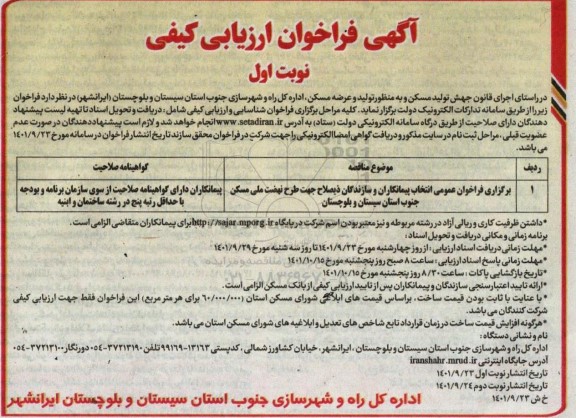 آگهی فراخوان ارزیابی کیفی
نوبت اول
در راستای اجرای قانون جهش تولید مسکن و به منظور تولید و عرضه مسکن، اداره کل راه و شهرسازی جنوب استان سیستان و بلوچستان (ایرانشهر) در نظر دارد فراخوان
زیر را از طریق سامانه تدارکات الکترونیک دولت برگزار نماید. کلیه مراحل برگزاری فراخوان شناسایی و ارزیابی کیفی شامل: دریافت و تحویل اسناد تا تهیه لیست پیشنهاد
دهندگان دارای صلاحیت از طریق درگاه سامانه الکترونیکی دولت (ستاد) به آدرس www.setadiran.ir انجام خواهد شد و لازم است پیشنهاددهندگان در صورت عدم
عضویت قبلی، مراحل ثبت نام در سایت مذکور و دریافت گواهی امضا الکترونیکی را جهت شرکت در فراخوان محقق سازند تاریخ انتشار فراخوان در سامانه مورخ ۱۴۰۱/۹/۲۳
می باشد.
ردیف موضوع مناقصه گواهینامه صلاحیت
۱ برگزاری فراخوان عمومی انتخاب پیمانکاران و سازندگان ذیصلاح جهت طرح نهضت ملی مسکن پیمانکاران دارای گواهینامه صلاحیت از سوی سازمان برنامه و بودجه
جنوب استان سیستان و بلوچستان با حداقل رتبه پنج در رشته ساختمان و ابنیه
*داشتن ظرفیت کاری و ریالی آزاد در رشته مربوطه و نیز معتبر بودن اسم شرکت در پایگاه http://sajar.mporg.ir برای پیمانکاران متقاضی الزامی است.
برنامه زمانی و مکانی دریافت و تحویل اسناد:
*مهلت زمانی دریافت اسناد ارزیابی: از روز چهارشنبه مورخ ۱۴۰۱/۹/۲۳ تا روز سه شنبه مورخ ۱۴۰۱/۹/۲۹
*مهلت زمانی پاسخ اسناد ارزیابی: ساعت ۸ صبح روز پنجشنبه مورخ ۱۴۰۱/۱۰/۱۵
*تاریخ بازگشایی پاکات: ساعت ۸/۲۰ روز پنجشنبه مورخ ۱۴۰۱/۱۰/۱۵
*ارائه تایید اعتبارسنجی سازندگان و پیمانکاران پس از تایید ارزیابی کیفی از بانک مسکن الزامی است.
* با عنایت با ثابت بودن قیمت ساخت، براساس قیمت های ابلاغی شورای مسکن استان (۶۰/۰۰۰/۰۰۰ برای هر متر مربع) این فراخوان فقط جهت ارزیابی کیفی
شرکت کنندگان می باشد.
*هرگونه افزایش قیمت ساخت در زمان قرارداد تابع شاخص های تعدیل و ابلاغیه های شورای مسکن استان می باشد.
نام و نشانی دستگاه:
اداره کل راه و شهرسازی جنوب استان سیستان و بلوچستان، ایرانشهر، خیابان کشاورز شمالی، کدپستی ۱۳۱۶۳-۹۹۱۶۹ تلفن ۳۷۲۱۳۱۹۰-۰۵۴ دورنگار ۳۷۲۱۳۲۰۰-۰۵۴
آدرس جایگاه اینترنتی iranshahr.mrud.ir
تاریخ انتشار نوبت اول ۱۴۰۱/۹/۲۳
تاریخ انتشار نوبت دوم ۱۴۰۱/۹/۲۴
خ ش ۱۴۰۱/۹/۲۳
اداره کل راه و شهرسازی جنوب استان سیستان و بلوچستان ایرانشهر